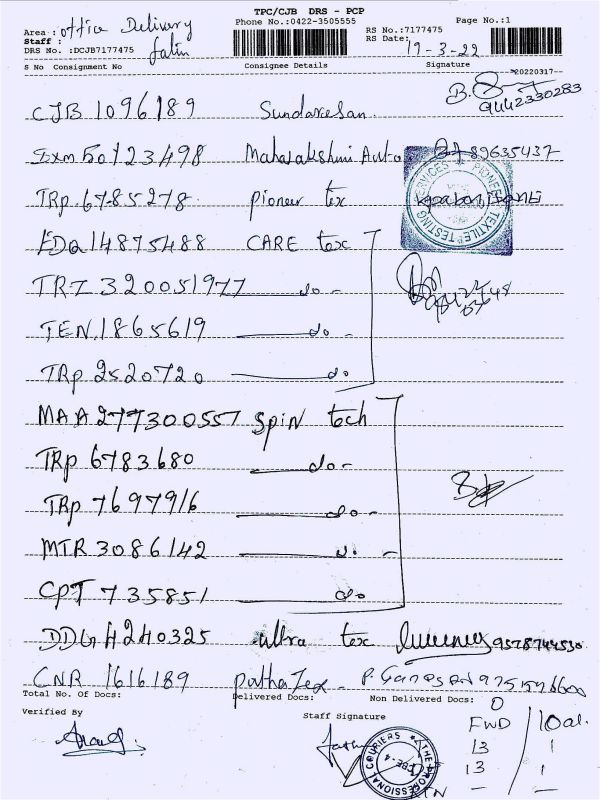 TPC/CJB DRS - PCP
Area : office Delivery Phone No.:0422-3505555 RS No.:7177475 Page No.:1
Staff : Jatin RS Date: 19-3-22
DRS No. :DCJB7177475
S No Consignment No Consignee Details Signature
20220317
CJB 1096189 Sundaresan. 9442330283
50123498 Mahalakshmi Auto 89635437
TRP 6785278 pioneer tex
SERVICES PIONEER TEXTILE TESTING
EDQ 14875488 CARE tex
TRZ 320051977 do -
TEN 1865619 do -
TRP 2520720 do
MAA 277300557 Spin tech
TRP 6783680 do -
TRP 7697916 do -
MTR 3086142 do -
CPT 735851 do
DDG 4240325 ultra tex 9578744530
CNR 1616189 P. Ganesan
Total No. Of Docs: Delivered Docs: Non Delivered Docs: 0
Verified By Staff Signature FWD / loal.
13 1
13 1
THE PROFESSIONAL COURIERS
- -